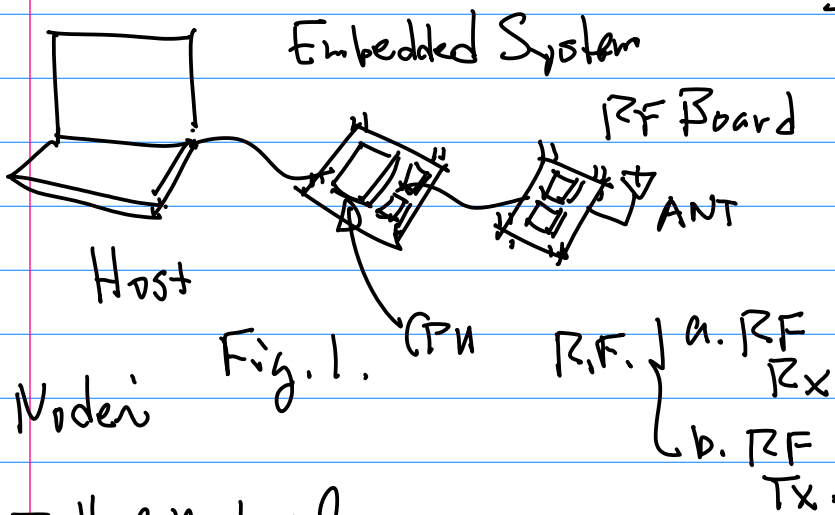 Embedded System
RF Board
ANT
Host
CPU
Fig. 1.
R.F. { a. RF
Rx
b. RF
Tx.